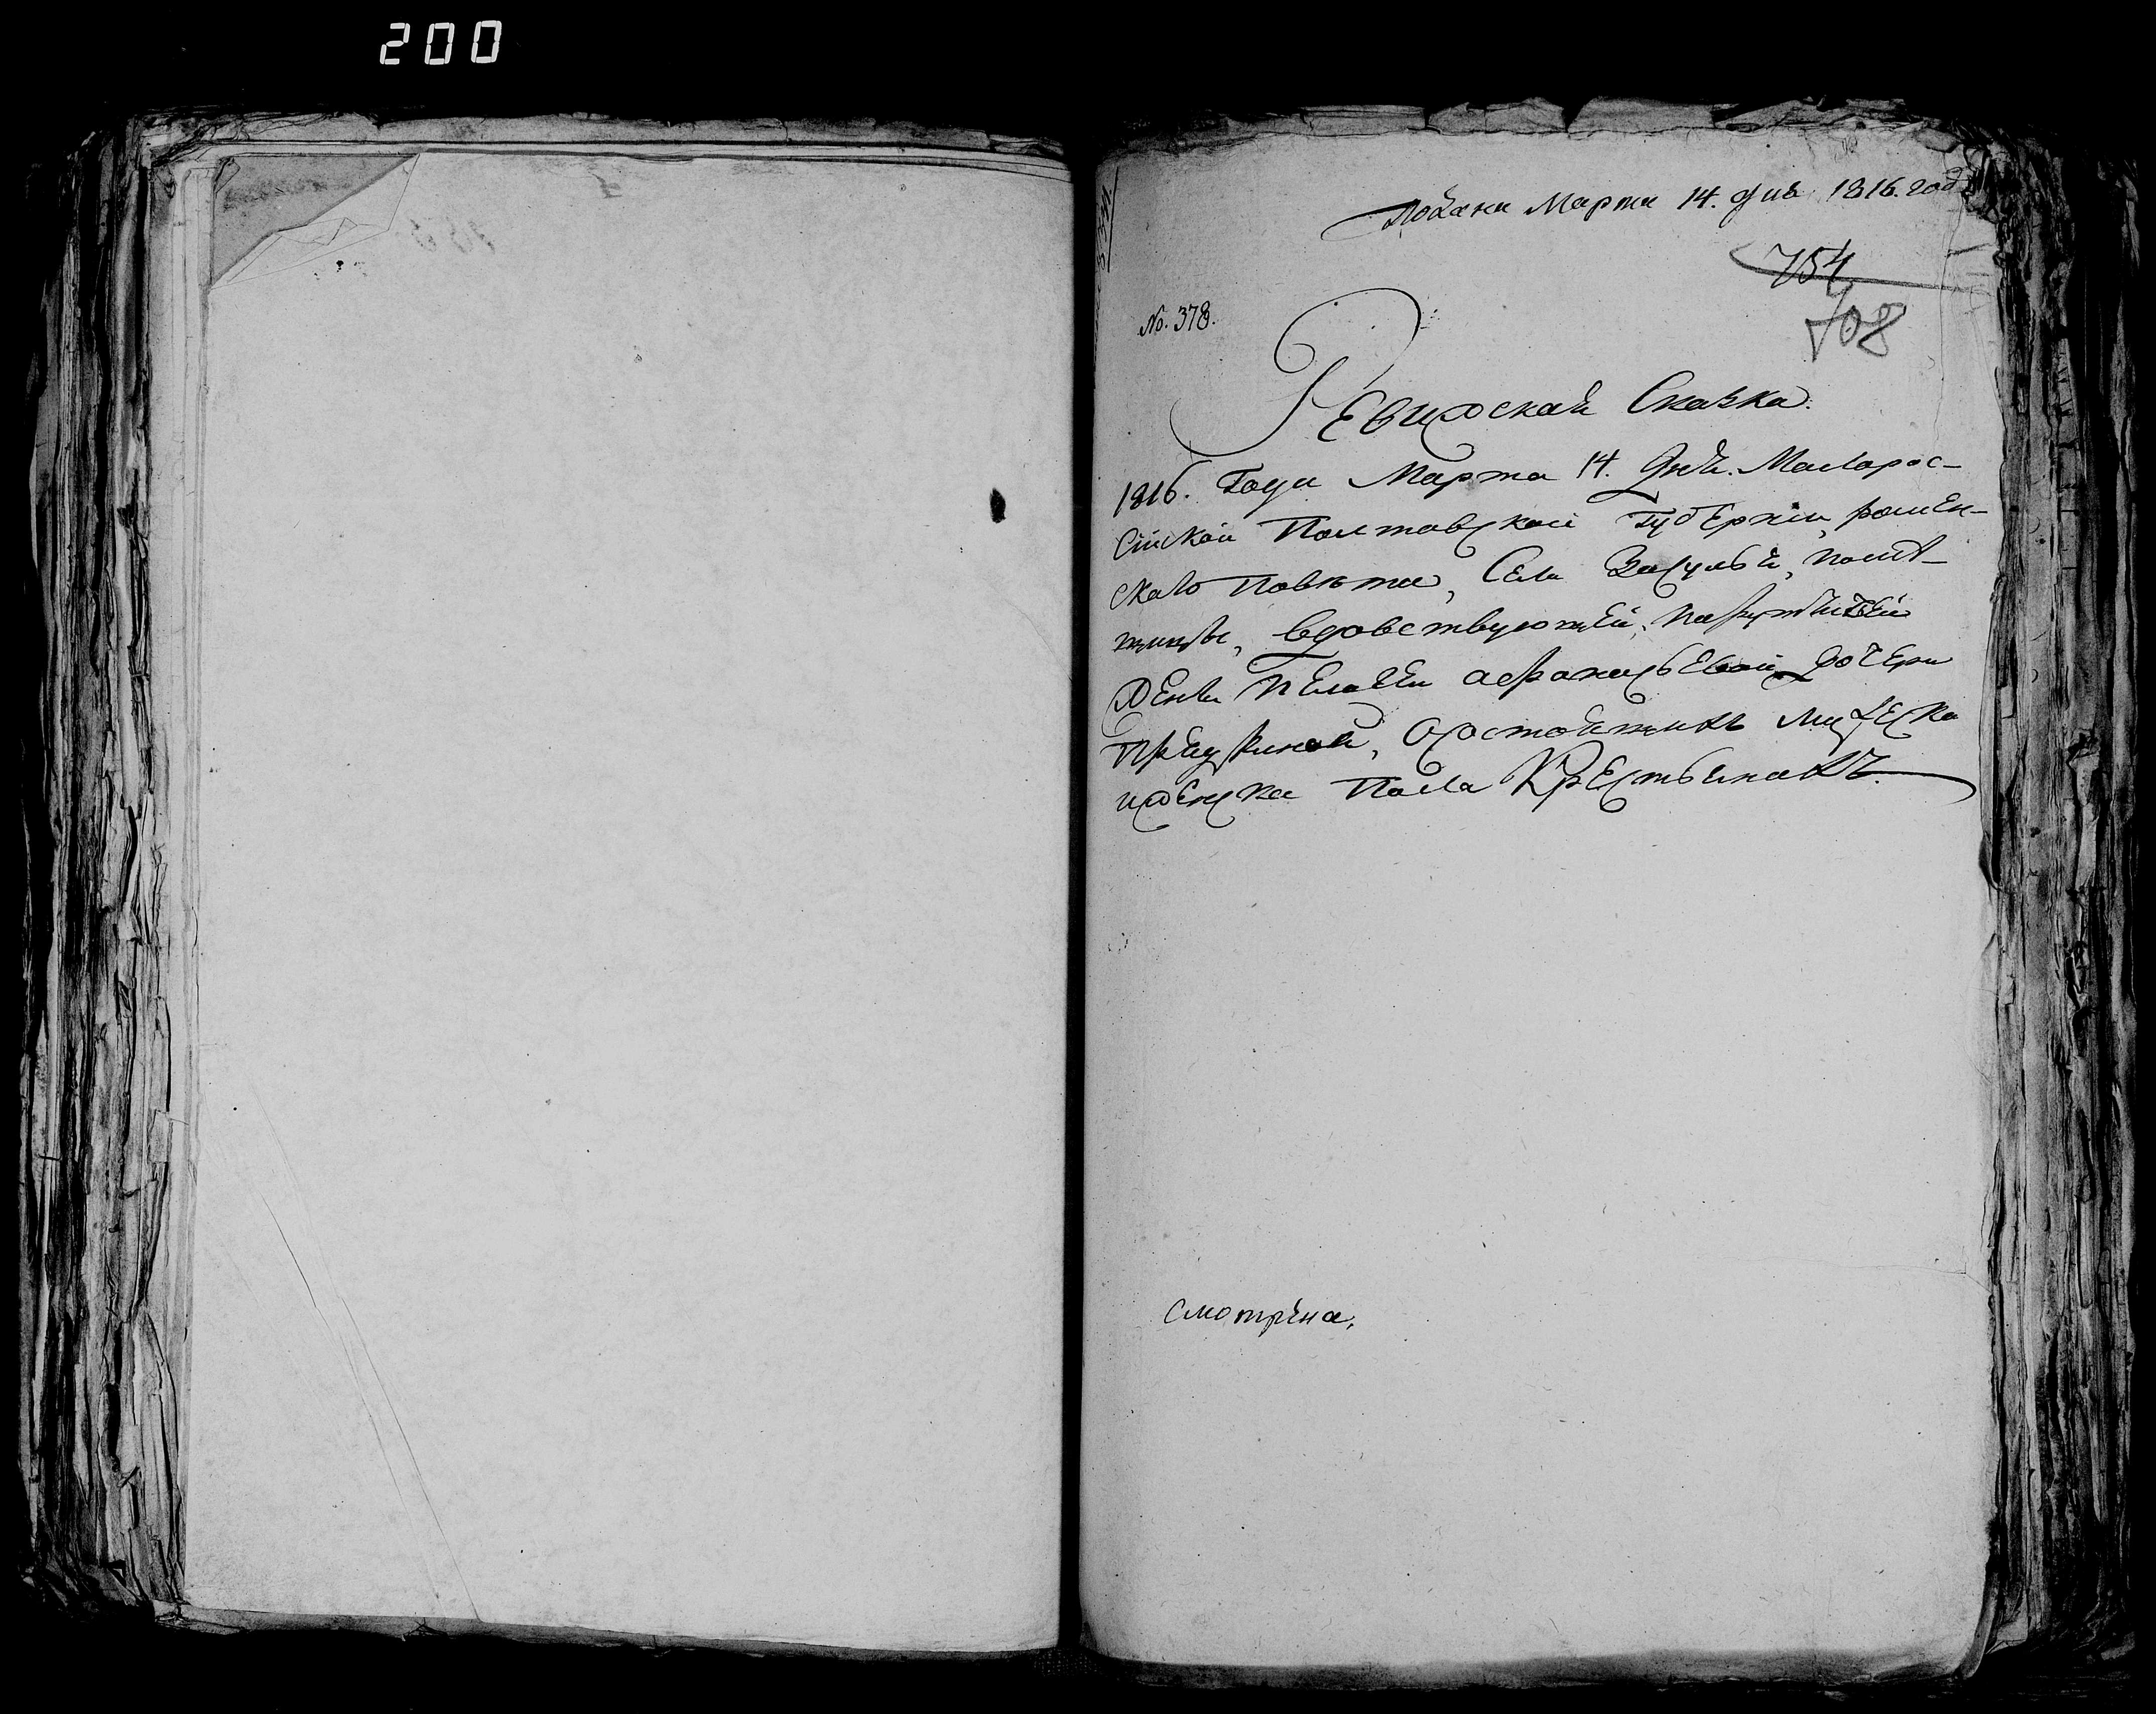 200
Подана Марта 14. дня 1816. года
754
708
No. 378.
Ревизская Сказка.
1816. Года Марта 14. Дня. Малорос-
сійской Полтавской Губерніи, ромен-
скаго Повѣта, Села Засулья, помѣ-
щицы, вдовствующей,
Пелагеи афанасьевой дочери
, Состоящихъ мужеска
иженска Пола Крестьянахъ.
Смотрена.